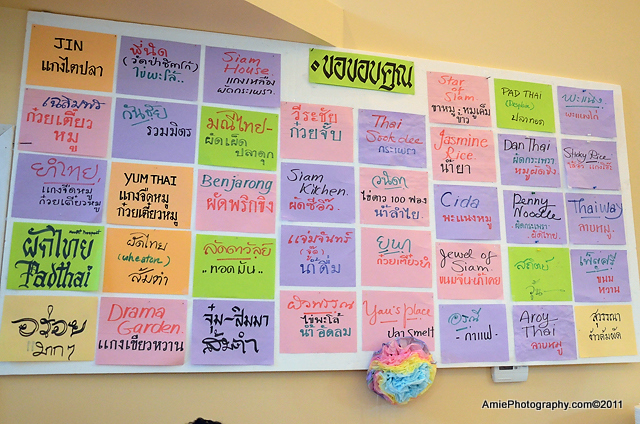 ขอขอบคุณ
JIN
แกงไตปลา
พี่นิด
(วัดป่าชิคาโก้)
ไข่พะโล้..
Siam
House.
แกงเหลือง
ผัดกระเพรา.
Star
of
Siam
ขาหมู:หมูเค็ม
ข้าว
PAD THAI
ปลาทอด
พะแนง.
เฉลิมพร
ก๋วยเตี๋ยว
หมู
กันชัย
รวมมิตร
มณีไทย-
ผัดเผ็ด
ปลาดุก
วีระชัย
ก๋วยจั๊บ
Thai
Sookdee
กระเพรา
Jasmine
Rice.
น้ำยา
Dan Thai
ผัดกระเพรา
หมูผัดขิง
Sticky Rice
ยำไทย.
แกงจืดหมู
ก๋วยเตี๋ยวหมู
YUM THAI
แกงจืดหมู
ก๋วยเตี๋ยวหมู
Benjarong
ผัดพริกขิง
Siam
Kitchen.
ผัดซีอิ๊ว.
วนิดา
ไข่ดาว 100 ฟอง
น้ำลำไย.
Cida
พะแนงหมู
Penny
Noodle
ผัดกระเพรา
ผัดไทย.
Thaiway
ลาบหมู.
ผัดไทย
Padthai
ผัดไทย
(wheaton)
ส้มตำ
ลัดดาวัลย์
..ทอดมัน..
แจ่มจันทร์
น้ำดื่ม
ก๋วยเตี๋ยวยำ
Jewel of
Siam
ขนมจีนน้ำเงี้ยว
เพ็ญศรี
ขนม
หวาน
อร่อย
มากๆ
Drama
Garden.
แกงเขียวหวาน
จุ๋ม-สีมมา
ส้มตำ
ผิวพรรณ
ไข่พะโล้
น้ำอัดลม
Yau's place
ปลา smelt
อรณี
-กาแฟ
Aroy-
Thai
ลาบหมู
สุวรรณา
ข้าวต้มผัด
AmiePhotography.com©2011